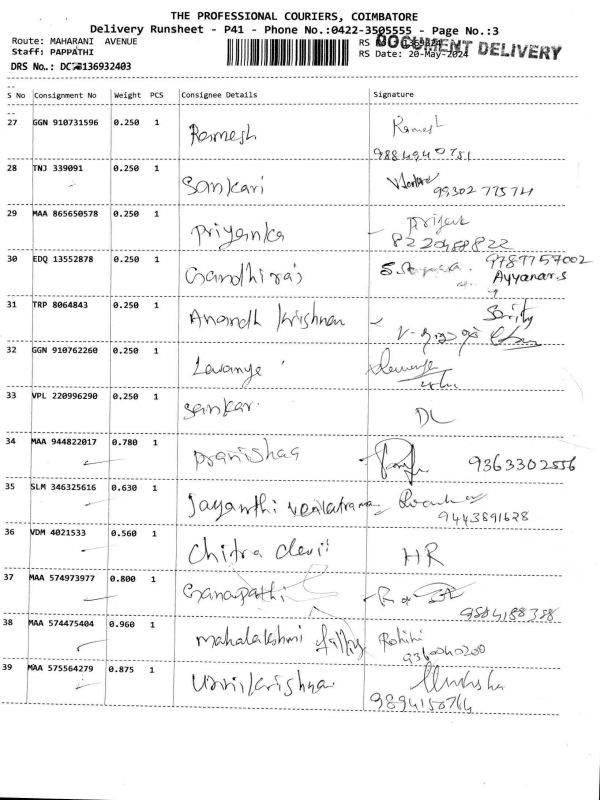 THE PROFESSIONAL COURIERS, COIMBATORE
Delivery Runsheet - P41 - Phone No.:0422-3505555 - Page No.:3
Route: MAHARANI AVENUE
DOCUMENT DELIVERY
Staff: PAPPATHI RS Date: 20-May-2024
DRS No.:
S No Consignment No Weight PCS Consignee Details Signature
27 GGN 910731596 0.250 1 Ramesh Ramesh
28 TNJ 339091 0.250 1 Sankari
29 MAA 865650578 0.250 1 Priyanka
30 EDQ 13552878 0.250 1 Gandhiraj 9787757002
Ayyanar.S
31 TRP 8064843 0.250 1 Anandh Krishnan
32 GGN 910762260 0.250 1 Lavanya
33 VPL 220996290 0.250 1 Sankar. DL
34 MAA 944822017 0.780 1 Pranishaa 9363302556
35 SLM 346325616 0.630 1 Jayanthi venkatrama
9443891628
36 VDM 4021533 0.560 1 Chitra devi HR
37 MAA 574973977 0.800 1 Ganapathi
9884188388
38 MAA 574475404 0.960 1 Mahalakshmi Rohini
9360040200
39 MAA 575564279 0.875 1 Unnikrishna
9894150764